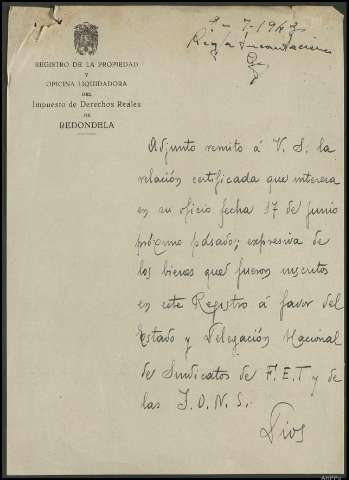 REGISTRO DE LA PROPIEDAD
Y
OFICINA LIQUIDADORA
DEL
Impuesto de Derechos Reales
DE
REDONDELA
9-7-1942
Adjunto remito á V. S. la
relación certificada que interesa
en su oficio fecha 17 de junio
próximo pasado; expresiva de
los bienes que fueron inscritos
en este Registro á favor del
Estado y Delegación Nacional
de Sindicatos de F. E. T y de
las J. O. N. S.
Dios